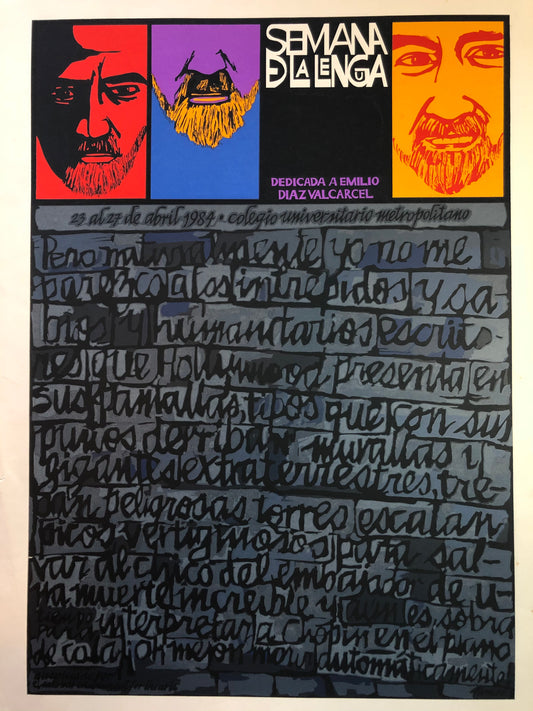 SEMANA
DE LA LENGUA
DEDICADA A EMILIO
DIAZ VALCARCEL
23 al 27 de abril 1984 • colegio universitario metropolitano
Pero naturalmente yo no me
parezco a los intrépidos y sa
bios y humanitarios escrito
res que Hollywood presenta en
sus pantallas, tipos que con sus
puños derriban murallas y
gigantes extraterrestres, tre
pan peligrosas torres, escalan
picos vertiginosos para sal-
var al chico del embando de u-
na muerte increíble y quienes, sobra
interpretar a Chopin en el piano
de cola, o mejor automáticamente